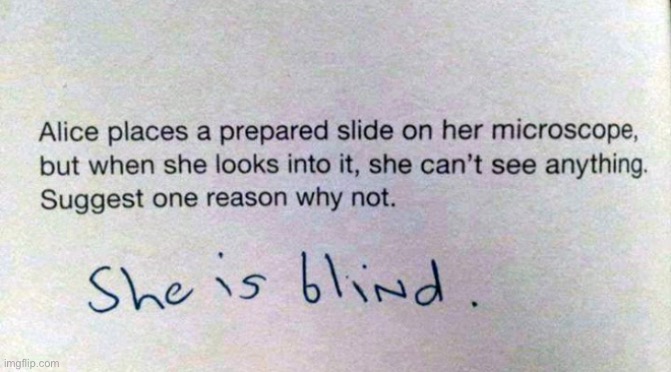 Alice places a prepared slide on her microscope,
but when she looks into it, she can't see anything.
Suggest one reason why not.
She is blind.
imgflip.com